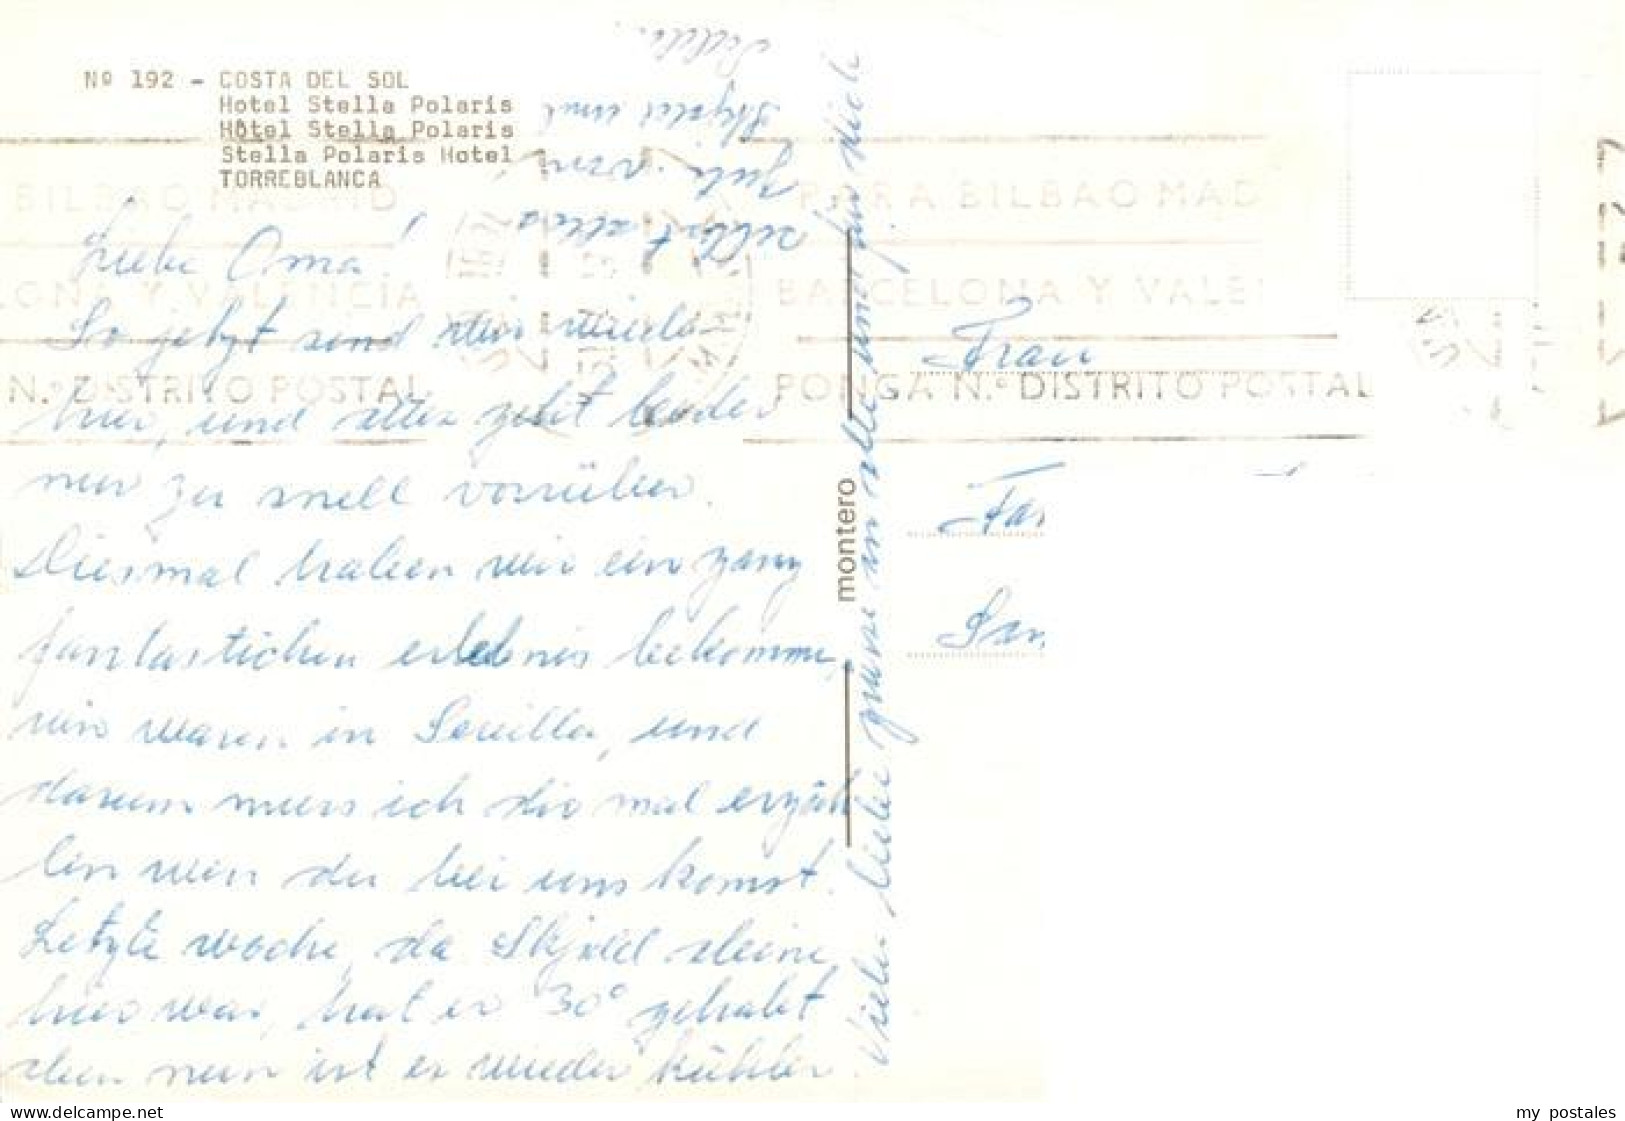 Nº 192 - COSTA DEL SOL
Hotel Stella Polaris
Hôtel Stella Polaris
Stella Polaris Hotel
TORREBLANCA
Liebe Oma!
So jetzt send wir wieder
hier, und alles geht leider
nur zu snell vorrüber.
Diesmal haben wir ein ganz
fantastichen erlebnis bekomme,
wir waren in Sevilla, und
darum muss ich dir mal erzäh
len wen du bei uns komst.
Letzte woche, da Skjold aleine
hier war, hat er 30° gehabt
aber nun ist er wieder kühler.
Viele liebe grüsse an alle und für dich
selbst alles
gute von
Skjold und
montero
Frau
Far
San
BILBAO MADRID
LONA Y VALENCIA
N.º DISTRITO POSTAL
PARA BILBAO MAD
BARCELONA Y VALE
PONGA N.º DISTRITO POSTAL
www.delcampe.net
my postales